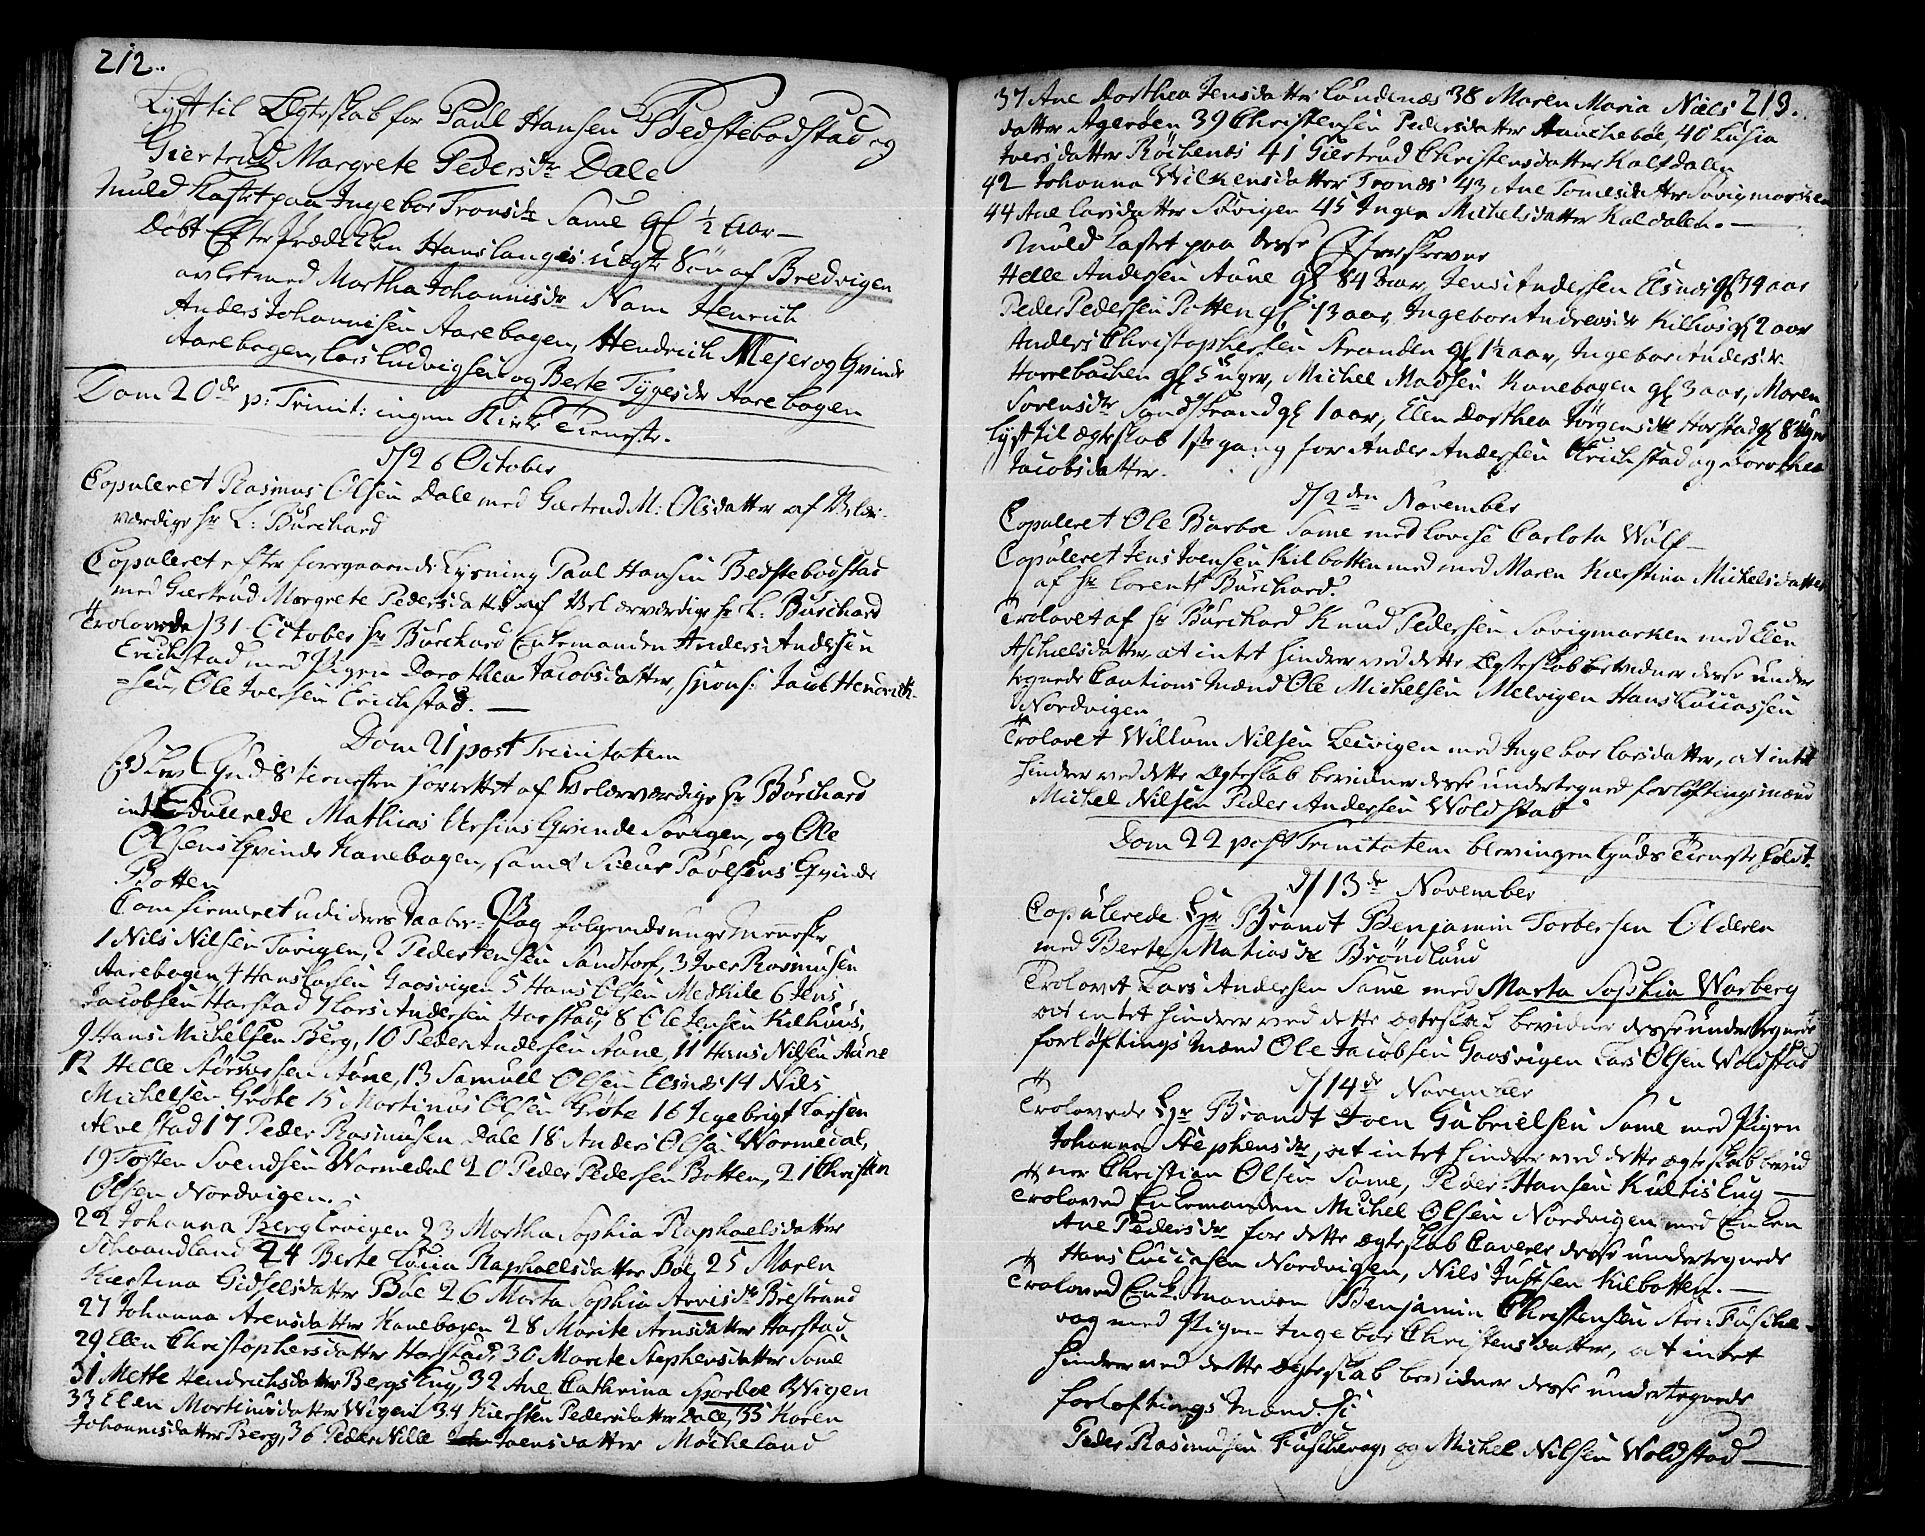 212.
Lyst til Egteskab for Paul Hansen Bedstebodstad og
Giertrud Margrete Pedersdr Dale
Muld kastet paa Ingebor Tronsdr Same gl ½ aar —
Døbt Efter prædiken Hans langes uegte Søn af Bredvigen
avlet med Martha Johannisdr Nam Henrich
Anders Johannisen Aarebogen, Hendrich Mejer og Qvinde
Aarebogen, Lars Ludvigsen og Berte Tygesdr Aarebogen
Dom 20de p: Trinit: ingen Kirke Tieneste.
d/26 October
Copuleret Rasmus Olsen Dale med Giertrud M: Olsdatter af Velær-
værdige hr L: Burchard
Copuleret efter foregaaende Lysning Paul Hansen Bedstebodstad
med Giertrud Margrete Pedersdatter af Velærværdige hr L: Burchard
Trolovede d/31 October hr Burchard Enkemanden Anders Andersen
Erichstad med Pigen Dorothea Jacobsdatter, spons: Jacob Hendrich-
sen, Ole Iversen Erichstad. —
Dom 21 post Trinitatem
Blev Guds tienesten forrettet af Velærværdige hr Burchard
introdullerede Mathias Ursins Qvinde Sovigen, og Ole
Olsens Qvinde Kanebogen, samt Sieur Povelsens Qvinde
Botten
Comfirmeret udi deres Daabes Pag følgende unge Menneske
1 Nils Nilsen Tovigen, 2 Peder Jensen Sandtorf, 3 Iver Rasmusen
Aarebogen 4 Hans Olsen Gaasvigen 5 Hans Olsen Medkile 6 Jens
Jacobsen Harstad 7 Lars Andersen Harstad, 8 Ole Jensen Kilhuus,
9 Hans Michelsen Berg, 10 Peder Andersen Aune, 11 Hans Nilsen Aune
12 Helle Andersen Aune, 13 Samuel Olsen Elsnes 14 Nils
Michelsen Grøte 15 Martinus Olsen Grøte 16 Ingebrigt Larsen
Alvestad 17 Peder Rasmusen Dale 18 Anders Olsen Wormedal,
19 Tosten Svendsen Wormedal 20 Peder Pedersen Botten, 21 Christen
Olsen Nordvigen.
22 Johanna Berg Ervigen 23 Martha Sophia Raphaelsdatter
Schaandland 24 Berte Lucia Raphaelsdatter Bøe 25 Maren
Kierstina Gidselsdatter Bøe 26 Marta Sophia Arvisdr Brestrand
27 Johanna Arensdatter Kanebogen 28 Marite Arnsdatter Harstad
29 Elen Christophersdatter Harstad, 30 Marete Stephensdatter Same
31 Mette Hendrichsdatter Bergs Eng, 32 Ane Cathrina Sparboe Wigen
33 Elen Martinusdatter Wigen 34 Kiersten Pedersdatter Dale, 35 Karen
Johannisdatter Berg, 36 Peder Nille Joensdatter Møcheland
213.
37 Ane Dorthea Jensdatter Lundenæs 38 Maren Maria Niels
datter Agerøen 39 Christensen Pedersdatter Haucheböe, 40 Lusia
Iversdatter Röchenæs 41 Giertrud Christensdatter Kalsdalen
42 Johanna Wilkensdatter Tronæs 43 Ane Tomesdatter Sovigmarken
44 Ane Larsdatter Sövigen 45 Inger Michelsdatter Kaldalen. —
Muld kastet paa desse Efterskrevne
Helle Andersen Aune gl 84 aar, Jens Andersen Elsnes gl 74 aar
Peder Pedersen Botten gl 73 aar, Ingebor Andreisdr Kilhus gl 2 aar
Anders Christophersen Stranden gl 1½ aar, Ingebor Andersdr
Harrebachen gl 5 uger, Michel Madsen Kanebogen gl 3 aar, Maren
Sorensdr Sandstrand gl 1 aar, Elen Dorthea Jörgensdr Harstad gl 8 Uger
Lyst til ægteskab 1ste gang for Ander Andersen Erichstad og Dorothea
Jacobsdatter.
d/2den November
Copuleret Ole Barboe Same med Lovise Carlota Wulf —
Copuleret Jens Joensen Kilbotten med med Maren Kierstina Michelsdatter
af hr Lorents Burchard.
Trolovet af hr Burchard Knud Pedersen Sovigmarken med Elen
Aschielsdatter at intet hinder ved dette Egteskab bevidner desse under
tegnede Cautions Mænd Ole Michelsen Melvigen Hans Luccassen
Nordvigen
Trolovet Willum Nilsen Leevigen med Ingebor Larsdatter, at intet
hinder ved dette Egteskab bevidner desse undertegned forlöftingsmænd
Michel Nilsen Peder Andersen Woldstad
Dom 22 post Trinitatem blev ingen Guds Tieneste holdt.
d/13de November
Copulerede Hr Brandt Benjamin Torbersen Olderen
med Berte Matiasdr Bröndlund
Trolovet Lars Andersen Same med Marta Sophia Warberg
at intet hinder ved dette ægteskab bevidner desse undertegnede
forlöftings Mænd Ole Jacobsen Gaasvigen Lars Olsen Woldstad
d/14de November
Trolovede Hr Brandt Joen Gabrielsen Same med Pigen
Johanna Stephensdr, at intet hinder ved dette ægteskab bevid
ner Christian Olsen Same, Peder Hansen Kultis Eng —
Troloved Enkemanden Michel Olsen Nordvigen med Enken
Ane Pedersdr for dette ægteskab Caverer desse undertegnede
Hans Luccasen Nordvigen, Nils Justsen Kilbotten. —
Troloved Enkemanden Benjamin Christensen Stor-Fusche-
vog med Pigen Ingebor Christensdatter, at intet
hinder ved dette ægteskab bevidner desse undertegnede
forløftings Mænd, Si
Peder Rasmusen Fuschevog, og Michel Nilsen Woldstad —